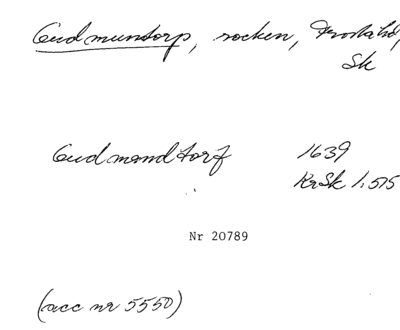 Gudmuntorp, socken, Frosta hd,
Sk
Gudmandtorf 1639
KrSk 1:515
Nr 20789
(acc nr 5550)